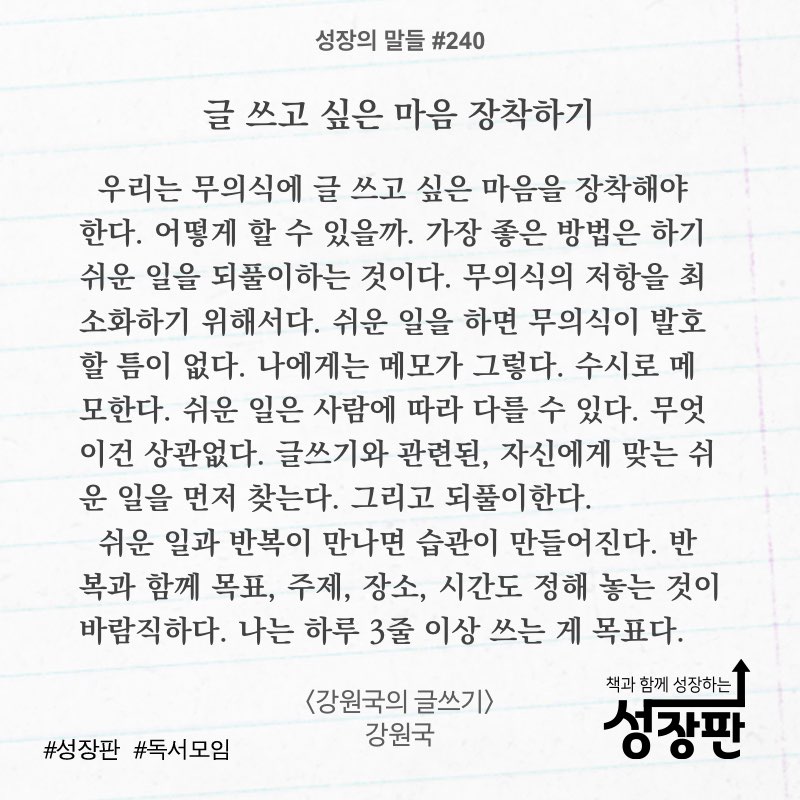 성장의 말들 #240
글 쓰고 싶은 마음 장착하기
우리는 무의식에 글 쓰고 싶은 마음을 장착해야
한다. 어떻게 할 수 있을까. 가장 좋은 방법은 하기
쉬운 일을 되풀이하는 것이다. 무의식의 저항을 최
소화하기 위해서다. 쉬운 일을 하면 무의식이 발호
할 틈이 없다. 나에게는 메모가 그렇다. 수시로 메
모한다. 쉬운 일은 사람에 따라 다를 수 있다. 무엇
이건 상관없다. 글쓰기와 관련된, 자신에게 맞는 쉬
운 일을 먼저 찾는다. 그리고 되풀이한다.
쉬운 일과 반복이 만나면 습관이 만들어진다. 반
복과 함께 목표, 주제, 장소, 시간도 정해 놓는 것이
바람직하다. 나는 하루 3줄 이상 쓰는 게 목표다.
〈강원국의 글쓰기〉
강원국
#성장판 #독서모임
책과 함께 성장하는
성장판